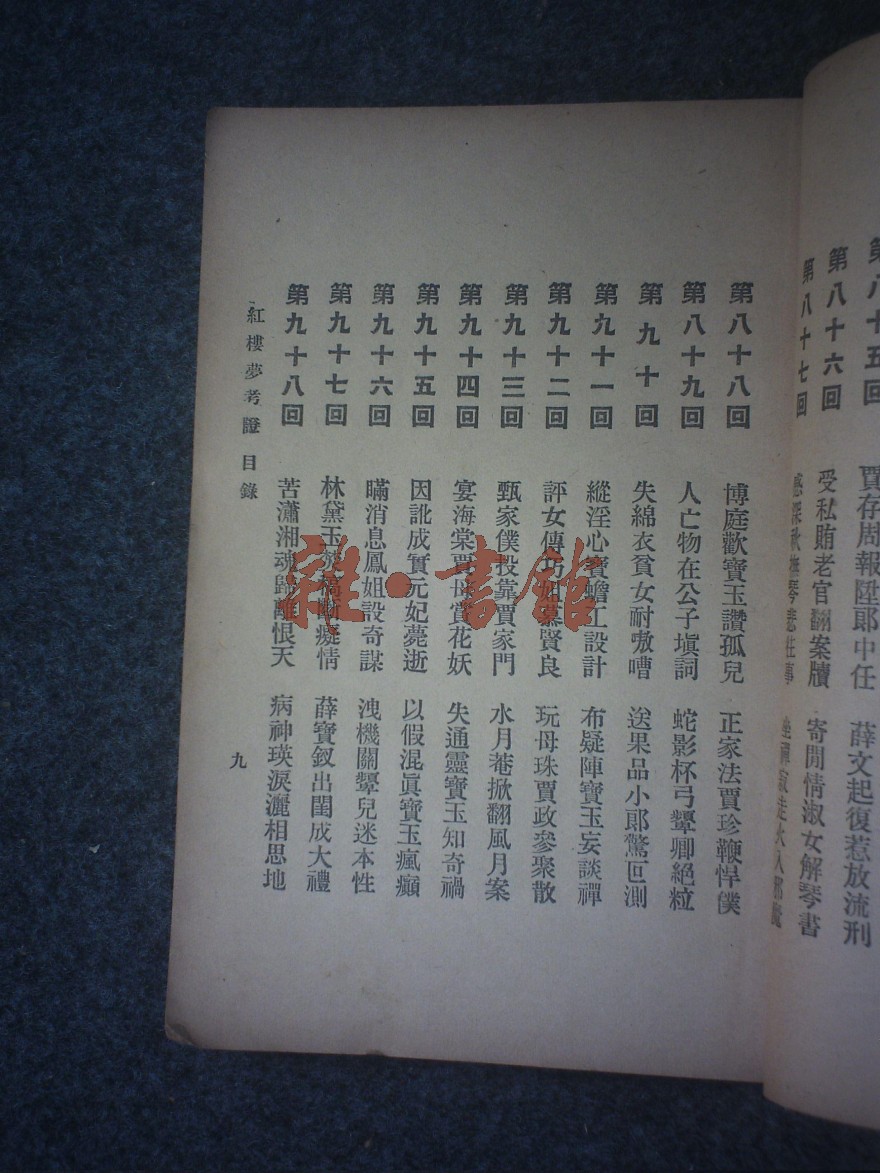 第八十五回 賈存周報陞郎中任 薛文起復惹放流刑
第八十六回 受私賄老官翻案牘 寄閒情淑女解琴書
第八十七回 感深秋撫琴悲往事 坐禪寂走火入邪魔
第八十八回 博庭歡寶玉讚孤兒 正家法賈珍鞭悍僕
第八十九回 人亡物在公子塡詞 蛇影杯弓顰卿絕粒
第九十回 失綿衣貧女耐嗷嘈 送果品小郎驚叵測
第九十一回 縱淫心寶蟾工設計 布疑陣寶玉妄談禪
第九十二回 評女傳巧姐慕賢良 玩母珠賈政參聚散
第九十三回 甄家僕投靠賈家門 水月菴掀翻風月案
第九十四回 宴海棠賈母賞花妖 失通靈寶玉知奇禍
第九十五回 因訛成實元妃薨逝 以假混眞寶玉瘋癲
第九十六回 瞞消息鳳姐設奇謀 洩機關顰兒迷本性
第九十七回 林黛玉焚稿斷癡情 薛寶釵出閨成大禮
第九十八回 苦瀟湘魂歸離恨天 病神瑛淚灑相思地
紅樓夢考證 目錄
九
雜·書館